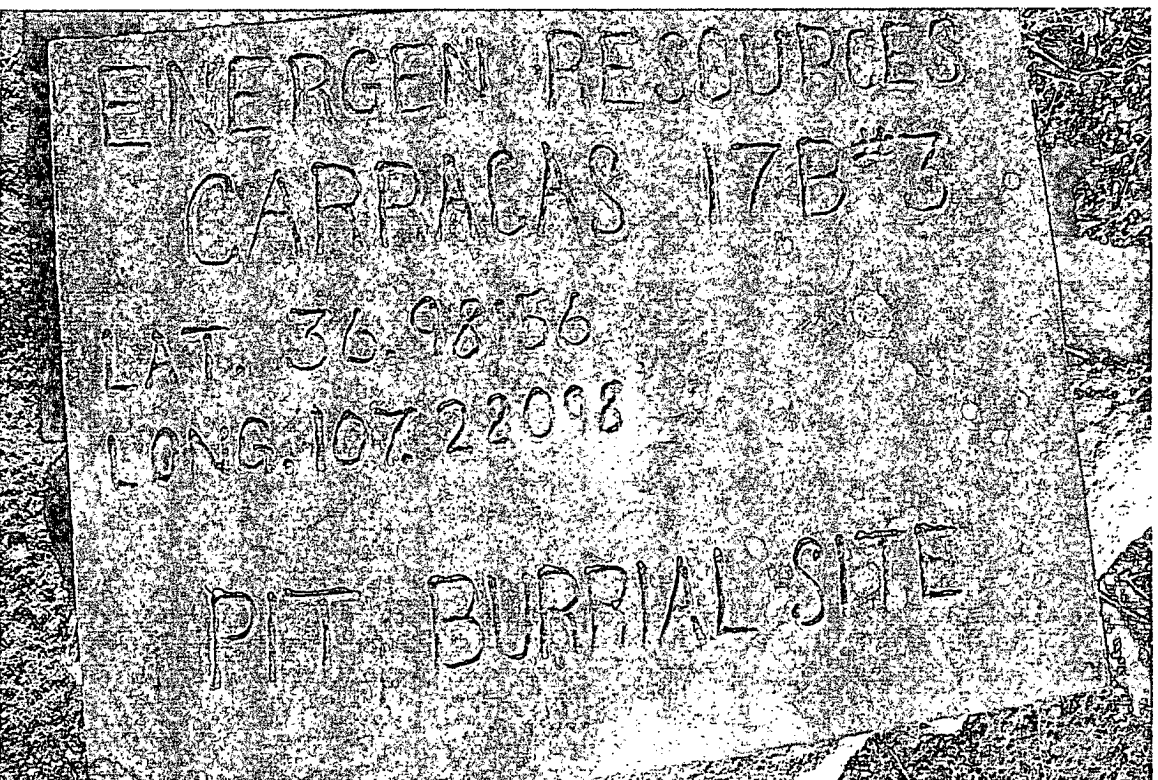 ENERGEN RESOURCES
CARRACAS 17B #3
LAT. 36.98156
LONG. 107.22098
PIT BURRIAL SITE